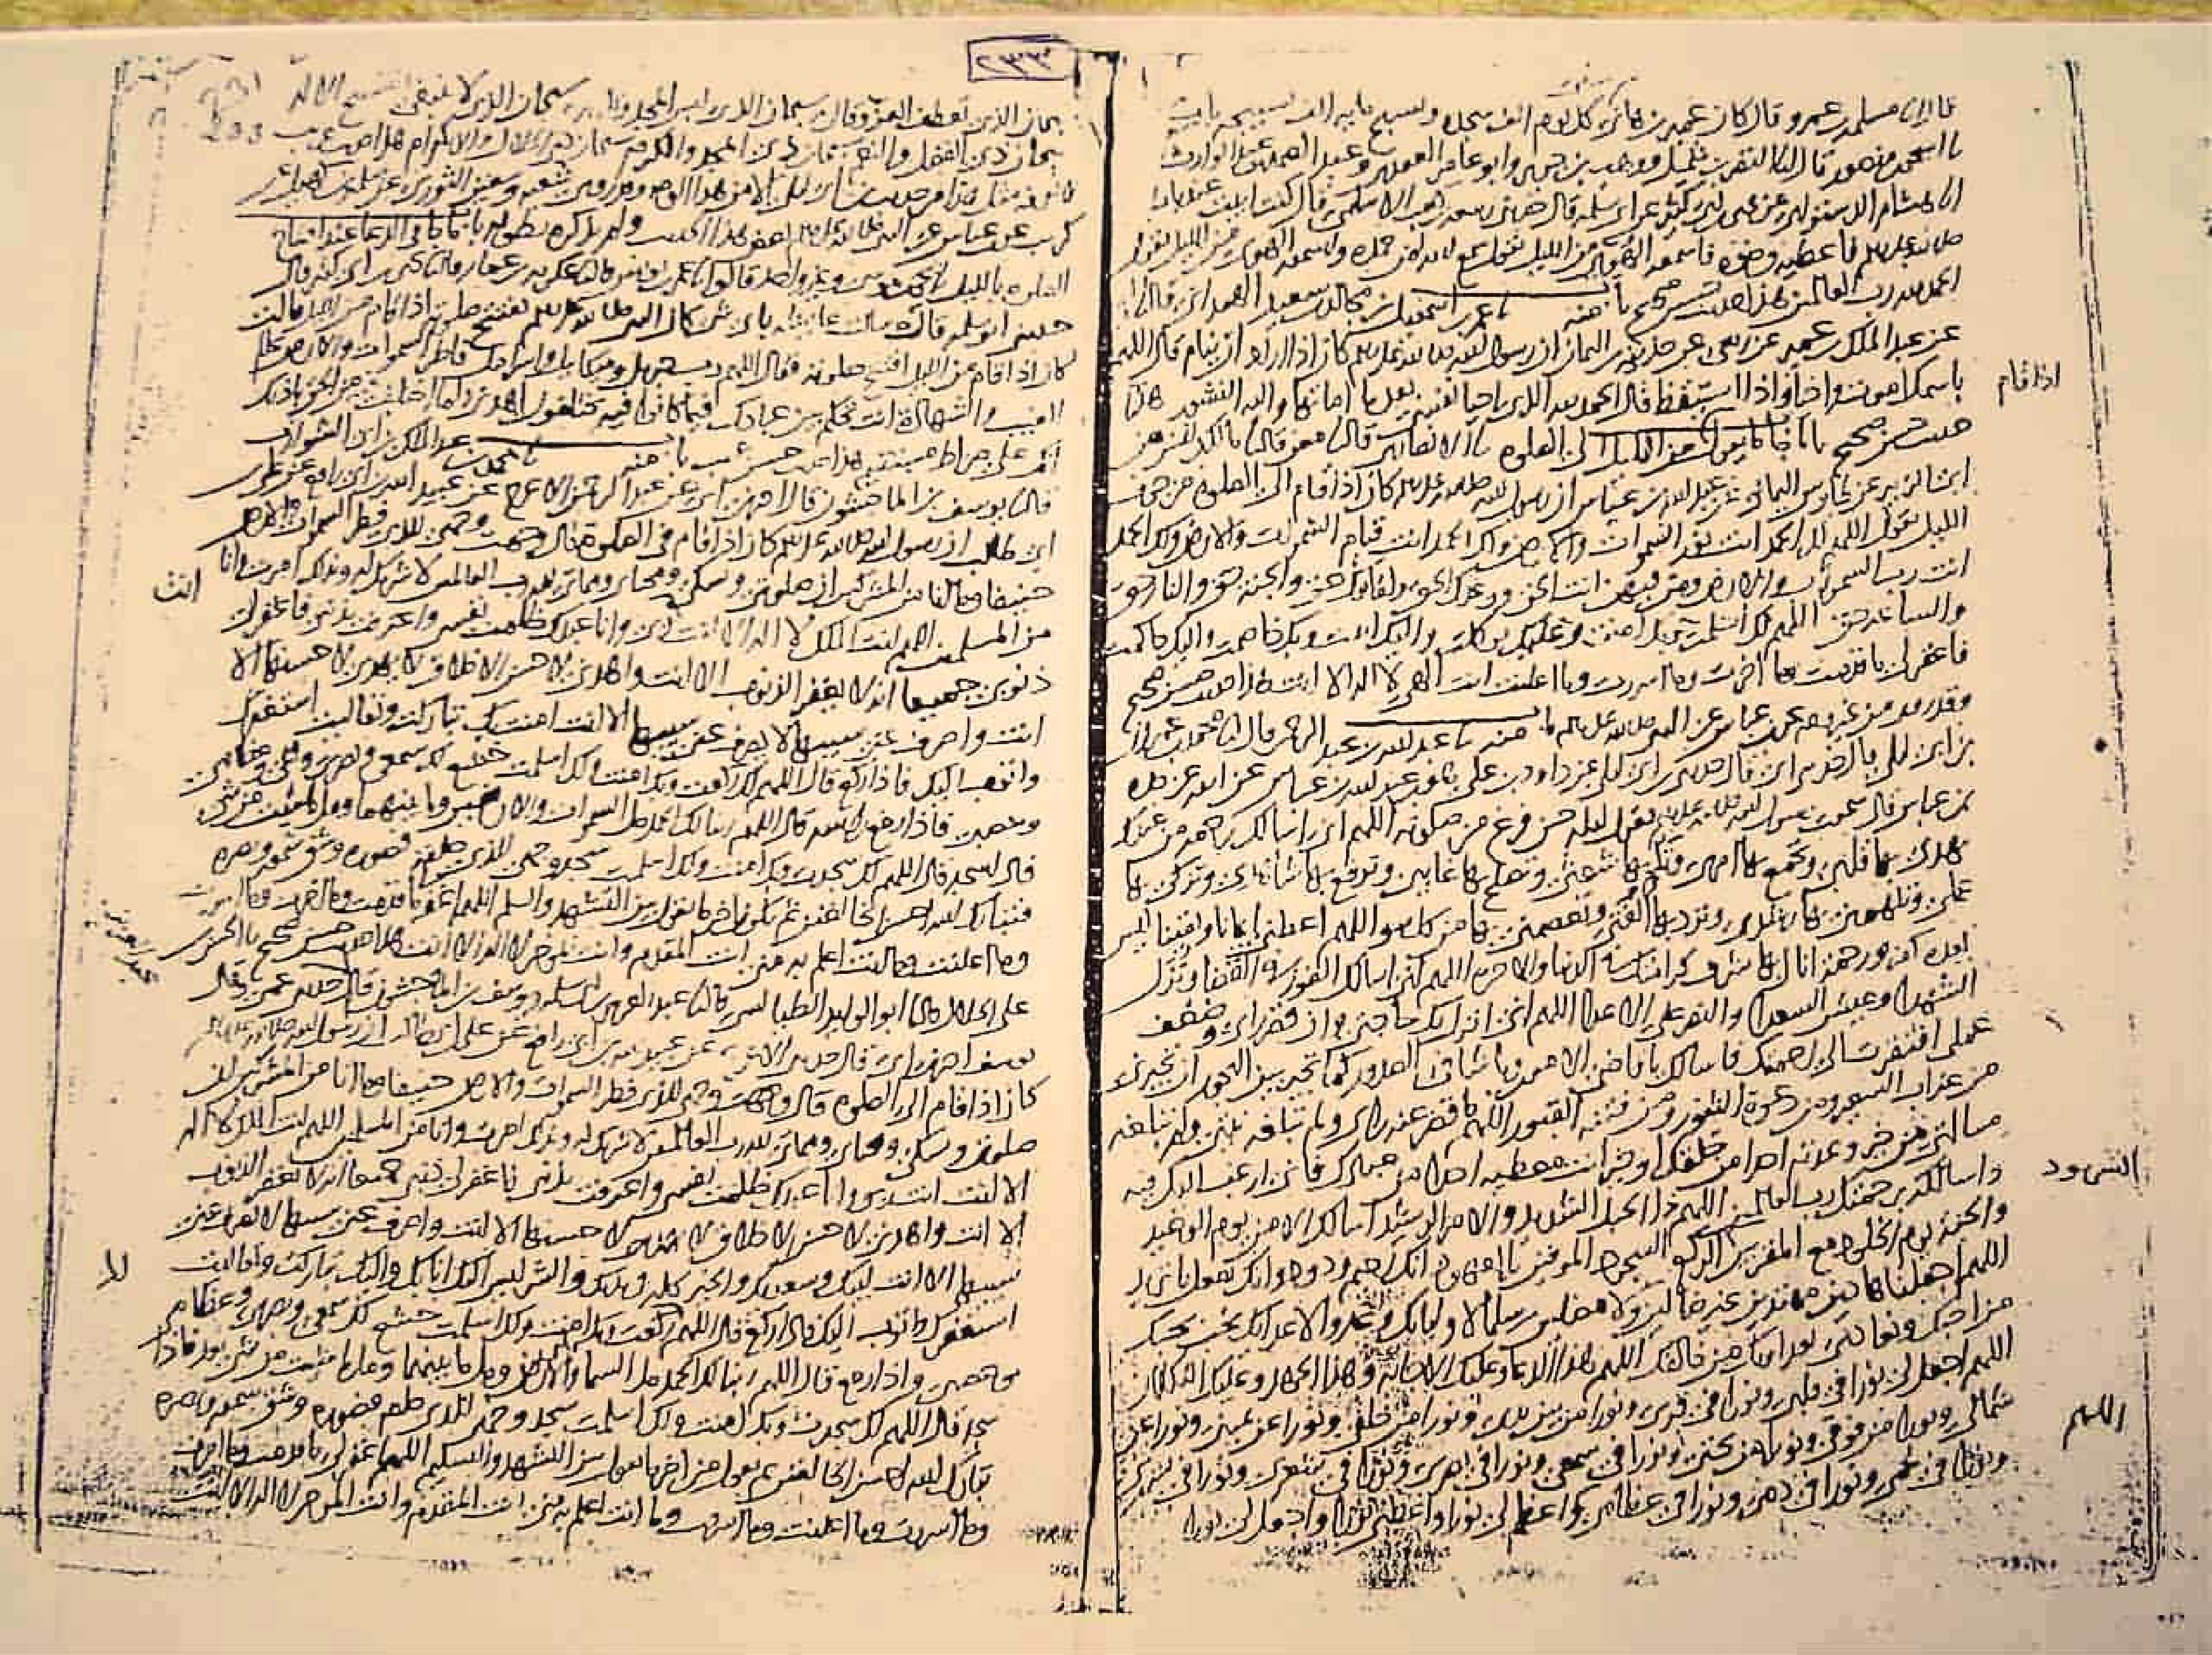 ٢٣٣
مسلمة بن عمرو قال كان عمير بن هانئ كل يوم الف سجدة ويسبح مايه الف تسبيحه باب
اسحق بن منصور قال النا النضر بن شميل ووهب بن جرير وابو عامر العقدي وعبد الصمد بن عبد الوارث
هشام الدستوائي عن يحيى بن ابي كثير عن ابي سلمه قال حدثني ربيعه بن كعب الاسلمي قال كنت ابيت عند باب
فاعطيه وضوه فاسمعه الهوي من الليل يقول سمع الله لمن حمده واسمعه الهوي من الليل يقول
الحمد لله رب العالمين هذا حديث حسن صحيح باب منه عمر بن اسمعيل بن مجالد بن سعيد
عن عبد الملك بن عمير عن ربعي عن حذيفه بن اليمان ان رسول الله صلى الله عليه وسلم كان اذا اراد ان ينام قال اللهم
باسمك اموت واحيا واذا استيقظ قال الحمد لله الذي احيا نفسي بعد ما اماتها واليه النشور هذا
اذا قام
حديث حسن صحيح باب ما جا ما يقول من الليل الى الصلوة الانصاري قال معن قال مالك بن انس عن
ابي الزبير عن طاوس اليماني عن عبد الله بن عباس ان رسول الله صلى الله عليه وسلم كان اذا قام الى الصلوة من جوف
الليل يقول اللهم لك الحمد انت نور السموات والارض ولك الحمد انت قيام السموات والارض ولك الحمد
انت رب السموات والارض ومن فيهن انت الحق ووعدك الحق ولقاوك حق والجنة حق والنار حق
والساعة حق اللهم لك اسلمت وبك امنت وعليك توكلت واليك انبت وبك خاصمت واليك حاكمت
فاغفر لي ما قدمت وما اخرت وما اسررت وما اعلنت انت الهي لا اله الا انت هذا حديث حسن صحيح
وقد روي من غير وجه عن ابن عباس عن النبي صلى الله عليه وسلم باب منه عبد الله بن عبد الرحمن قال محمد بن عمران
بن ابي ليلى قال حدثني ابي قال حدثني ابن ابي ليلى عن داود بن علي بن عبد الله بن عباس عن ابيه عن جده
بن عباس قال سمعت رسول الله صلى الله عليه وسلم يقول ليله حين فرغ من صلوته اللهم اني اسالك رحمه من عندك
تهدي بها قلبي وتجمع بها امري وتلم بها شعثي وتصلح بها غايبي وترفع بها شاهدي وتزكي بها
عملي وتلهمني بها رشدي وترد بها الفتي وتعصمني بها من كل سوء اللهم اعطني ايمانا ويقينا ليس
بعده كفر ورحمة انال بها شرف كرامتك في الدنيا والاخرة اللهم اني اسالك الفوز في القضا ونزل
الشهدا وعيش السعدا والنصر على الاعدا اللهم اني انزل بك حاجتي وان قصر رايي وضعف
عملي افتقرت الى رحمتك فاسالك يا قاضي الامور ويا شافي الصدور كما تجير بين البحور ان تجيرني
من عذاب السعير ومن دعوة الثبور ومن فتنه القبور اللهم ما قصر عنه رايي ولم تبلغه نيتي ولم تبلغه
مسالتي من خير وعدته احدا من خلقك او خير انت معطيه احدا من عبادك فاني ارغب اليك فيه
واسالكه برحمتك رب العالمين اللهم ذا الحبل الشديد والامر الرشيد اسالك الامن يوم الوعيد
السجود
والجنة يوم الخلود مع المقربين الركع السجود الموفين بالعهود انك رحيم ودود وانك تفعل ما تريد
اللهم اجعلنا هادين مهتدين غير ضالين ولا مضلين سلما لاوليائك وعدوا لاعدائك نحب بحبك
من احبك ونعادي بعداوتك من خالفك اللهم هذا الدعا وعليك الاجابة وهذا الجهد وعليك التكلان
اللهم اجعل لي نورا في قلبي ونورا في قبري ونورا من بين يدي ونورا من خلفي ونورا عن يميني ونورا عن
شمالي ونورا من فوقي ونورا من تحتي ونورا في سمعي ونورا في بصري ونورا في شعري ونورا في بشري
اللهم
ونورا في لحمي ونورا في دمي ونورا في عظامي اعظم لي نورا واعطني نورا واجعل لي نورا
سبحان الذي تعطف العز وقال به سبحان الذي لبس المجد وتكرم به سبحان الذي لا ينبغي التسبيح الا له
سبحان ذي الفضل والنعم سبحان ذي المجد والكرم سبحان ذي الجلال والاكرام هذا حديث غريب
لا نعرفه مثل هذا من حديث ابن ابي ليلى الا من هذا الوجه وقد روى شعبه وسفين الثوري عن سلمه بن كهيل عن
كريب عن ابن عباس عن النبي صلى الله عليه وسلم بعض هذا الحديث ولم يذكره بطوله باب ما جا في الدعا عند افتتاح
الصلوة بالليل يحيى بن موسى وغير واحد قالوا عمر بن يونس قال عكرمه بن عمار قال يحيى بن ابي كثير قال
حدثني ابو سلمه قال سالت عايشه باي شي كان النبي صلى الله عليه وسلم يفتتح صلوته اذا قام من الليل قالت
كان اذا قام من الليل افتتح صلوته فقال اللهم رب جبريل وميكايل واسرافيل فاطر السموات والارض عالم
الغيب والشهادة انت تحكم بين عبادك فيما كانوا فيه يختلفون اهدني لما اختلف فيه من الحق باذنك
انك على صراط مستقيم هذا حديث حسن غريب باب منه محمد بن عبد الملك بن ابي الشوارب
قال يوسف بن الماجشون قال اخبرني ابي عن عبد الرحمن الاعرج عن عبيد الله بن ابي رافع عن علي
ابن ابي طالب ان رسول الله صلى الله عليه وسلم كان اذا قام في الصلوة قال وجهت وجهي للذي فطر السموات والارض
حنيفا وما انا من المشركين ان صلوتي ونسكي ومحياي ومماتي لله رب العالمين لا شريك له وبذلك امرت وانا
من المسلمين اللهم انت الملك لا اله الا انت انت ربي وانا عبدك ظلمت نفسي واعترفت بذنبي فاغفر لي
انت
ذنوبي جميعا انه لا يغفر الذنوب الا انت واهدني لاحسن الاخلاق لا يهدي لاحسنها الا
انت واصرف عني سييها لا يصرف عني سييها الا انت امنت بك تباركت وتعاليت استغفرك
واتوب اليك فاذا ركع قال اللهم لك ركعت وبك امنت ولك اسلمت خشع لك سمعي وبصري ومخي وعظامي
وعصبي فاذا رفع راسه قال اللهم ربنا لك الحمد مل السموات والارضين وما بينهما ومل ما شئت من شي
فاذا سجد قال اللهم لك سجدت وبك امنت ولك اسلمت سجد وجهي للذي خلقه فصوره وشق سمعه وبصره
فتبارك الله احسن الخالقين ثم يكون اخر ما يقول بين التشهد والسلم اللهم اغفر لي ما قدمت وما اخرت وما اسررت
وما اعلنت وما انت اعلم به مني انت المقدم وانت الموخر لا اله الا انت هذا حديث حسن صحيح الحسن بن
علي الخلال قال ابو الوليد الطيالسي قال عبد العزيز بن ابي سلمه ويوسف بن الماجشون قال حدثني عمي وقال
يوسف اخبرني ابي قال حدثني الاعرج عن عبيد الله بن ابي رافع عن علي بن ابي طالب ان رسول الله صلى الله عليه وسلم
كان اذا قام الى الصلوة قال وجهت وجهي للذي فطر السموات والارض حنيفا وما انا من المشركين ان
صلوتي ونسكي ومحياي ومماتي لله رب العالمين لا شريك له وبذلك امرت وانا من المسلمين اللهم انت الملك لا اله
الا انت انت ربي وانا عبدك ظلمت نفسي واعترفت بذنبي فاغفر لي ذنبي جميعا انه لا يغفر الذنوب
الا انت واهدني لاحسن الاخلاق لا يهدي لاحسنها الا انت واصرف عني سييها لا يصرف عني
سييها الا انت لبيك وسعديك والخير كله في يديك والشر ليس اليك انا بك واليك تباركت وتعاليت
استغفرك واتوب اليك فاذا ركع قال اللهم لك ركعت وبك امنت ولك اسلمت خشع لك سمعي وبصري وعظامي
وعصبي واذا رفع قال اللهم ربنا لك الحمد مل السما والارض ومل ما بينهما ومل ما شئت من شي بعد فاذا
سجد قال اللهم لك سجدت وبك امنت ولك اسلمت سجد وجهي للذي خلقه فصوره وشق سمعه وبصره
تبارك الله احسن الخالقين ثم يقول من اخر ما يقول بين التشهد والتسليم اللهم اغفر لي ما قدمت وما اخرت
وما اسررت وما اعلنت وما اسرفت وما انت اعلم به مني انت المقدم وانت الموخر لا اله الا انت